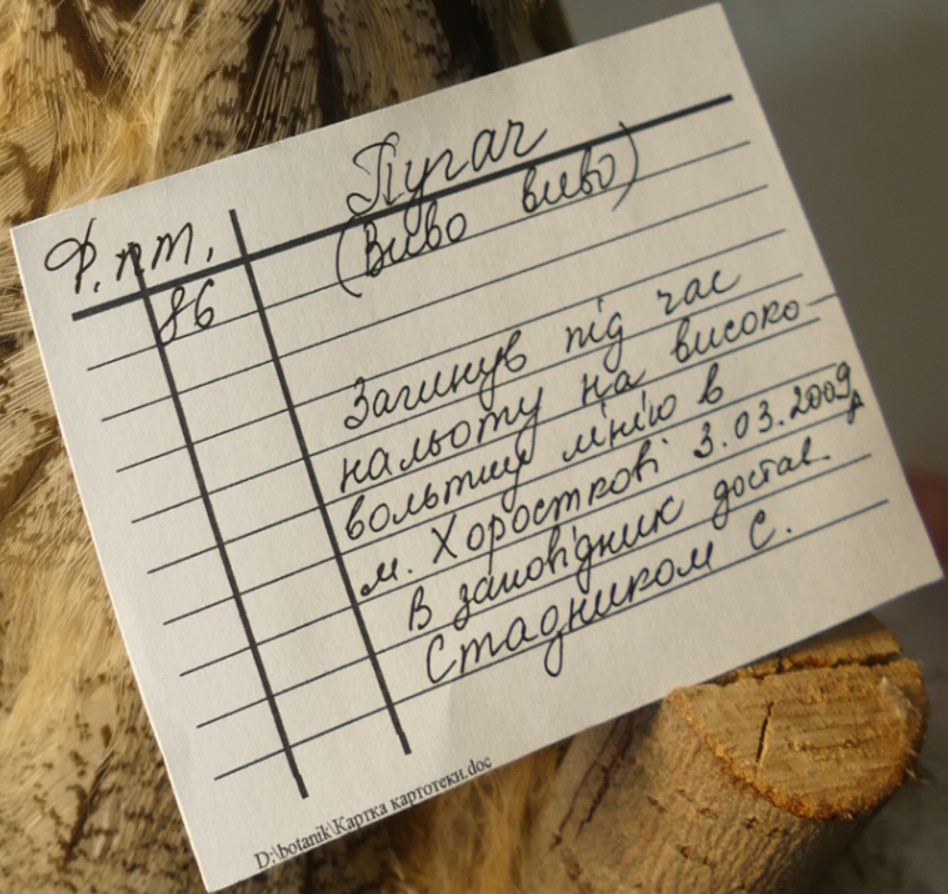 Пугач
Ф.пт.
(Виво виво)
86
Загинув під час
нальоту на високо-
вольтну лінію в
м. Хоросткові 3.03.2009р
В заповідник достав.
Стадником С.
D:\botanik\Картка картотеки.doc